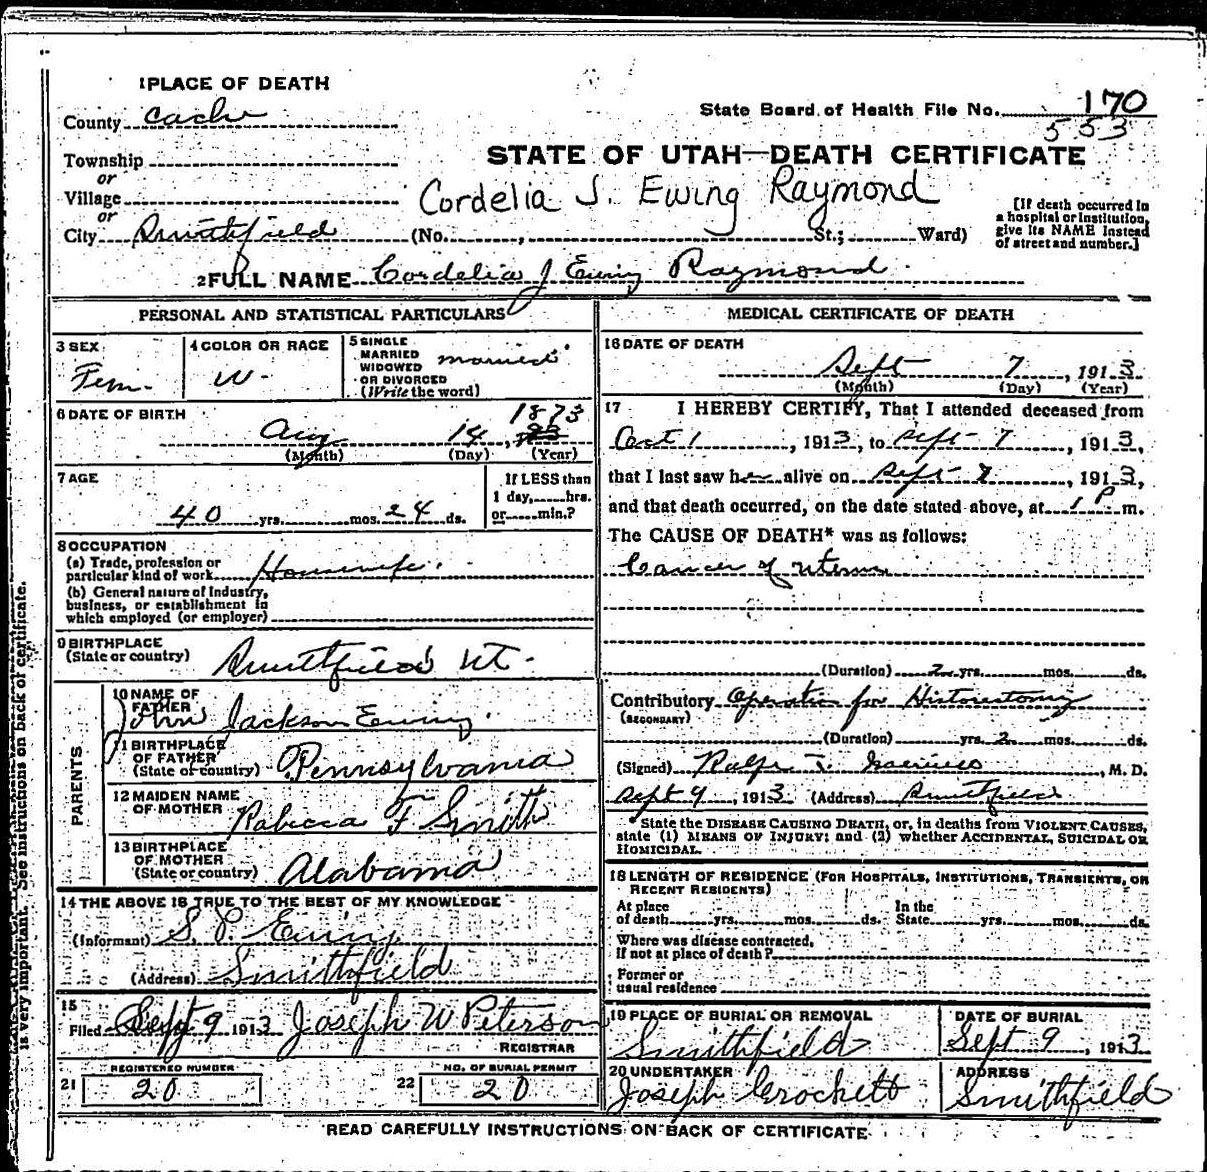 1 PLACE OF DEATH
County Cache
State Board of Health File No. 170
553
Township
or
Village
or
City Smithfield (No. , St.; Ward)
STATE OF UTAH—DEATH CERTIFICATE
Cordelia J. Ewing Raymond
[If death occurred in
a hospital or institution,
give its NAME instead
of street and number.]
2 FULL NAME Cordelia J Ewing Raymond
PERSONAL AND STATISTICAL PARTICULARS
3 SEX
Fem.
4 COLOR OR RACE
W.
5 SINGLE
MARRIED
WIDOWED
OR DIVORCED
(Write the word)
married
6 DATE OF BIRTH
1873
Aug 14,
(Month) (Day) (Year)
7 AGE
40 yrs. mos. 24 ds.
If LESS than
1 day, hrs.
or min.?
8 OCCUPATION
(a) Trade, profession or
particular kind of work Housewife.
(b) General nature of Industry,
business, or establishment in
which employed (or employer)
9 BIRTHPLACE
(State or country) Smithfield Ut.
PARENTS
10 NAME OF
FATHER
John Jackson Ewing.
11 BIRTHPLACE
OF FATHER
(State or country) Pennsylvania
12 MAIDEN NAME
OF MOTHER Rabecca F Smith
13 BIRTHPLACE
OF MOTHER
(State or country) Alabama
14 THE ABOVE IS TRUE TO THE BEST OF MY KNOWLEDGE
(Informant) S. P. Ewing
(Address) Smithfield
15
Filed Sept 9 1913 Joseph W Peterson
REGISTRAR
REGISTERED NUMBER
21 20
NO. OF BURIAL PERMIT
22 20
MEDICAL CERTIFICATE OF DEATH
16 DATE OF DEATH
Sept 7, 1913
(Month) (Day) (Year)
17 I HEREBY CERTIFY, That I attended deceased from
Oct 1, 1913, to Sept 7, 1913,
that I last saw her alive on Sept 7, 1913,
and that death occurred, on the date stated above, at 1 P m.
The CAUSE OF DEATH* was as follows:
Cancer of uterus
(Duration) 2 yrs. mos. ds.
Contributory Operation for Historectomy
(SECONDARY)
(Duration) yrs. 2 mos. ds.
(Signed) , M. D.
Sept 9, 1913 (Address) Smithfield
State the DISEASE CAUSING DEATH, or, in deaths from VIOLENT CAUSES,
state (1) MEANS OF INJURY; and (2) whether ACCIDENTAL, SUICIDAL OR
HOMICIDAL.
18 LENGTH OF RESIDENCE (FOR HOSPITALS, INSTITUTIONS, TRANSIENTS, OR
RECENT RESIDENTS)
At place
of death yrs. mos. ds.
In the
State yrs. mos. ds.
Where was disease contracted,
if not at place of death?
Former or
usual residence
19 PLACE OF BURIAL OR REMOVAL
Smithfield
DATE OF BURIAL
Sept 9, 1913
20 UNDERTAKER
Joseph Crockett
ADDRESS
Smithfield
READ CAREFULLY INSTRUCTIONS ON BACK OF CERTIFICATE
is very important. See instructions on back of certificate.